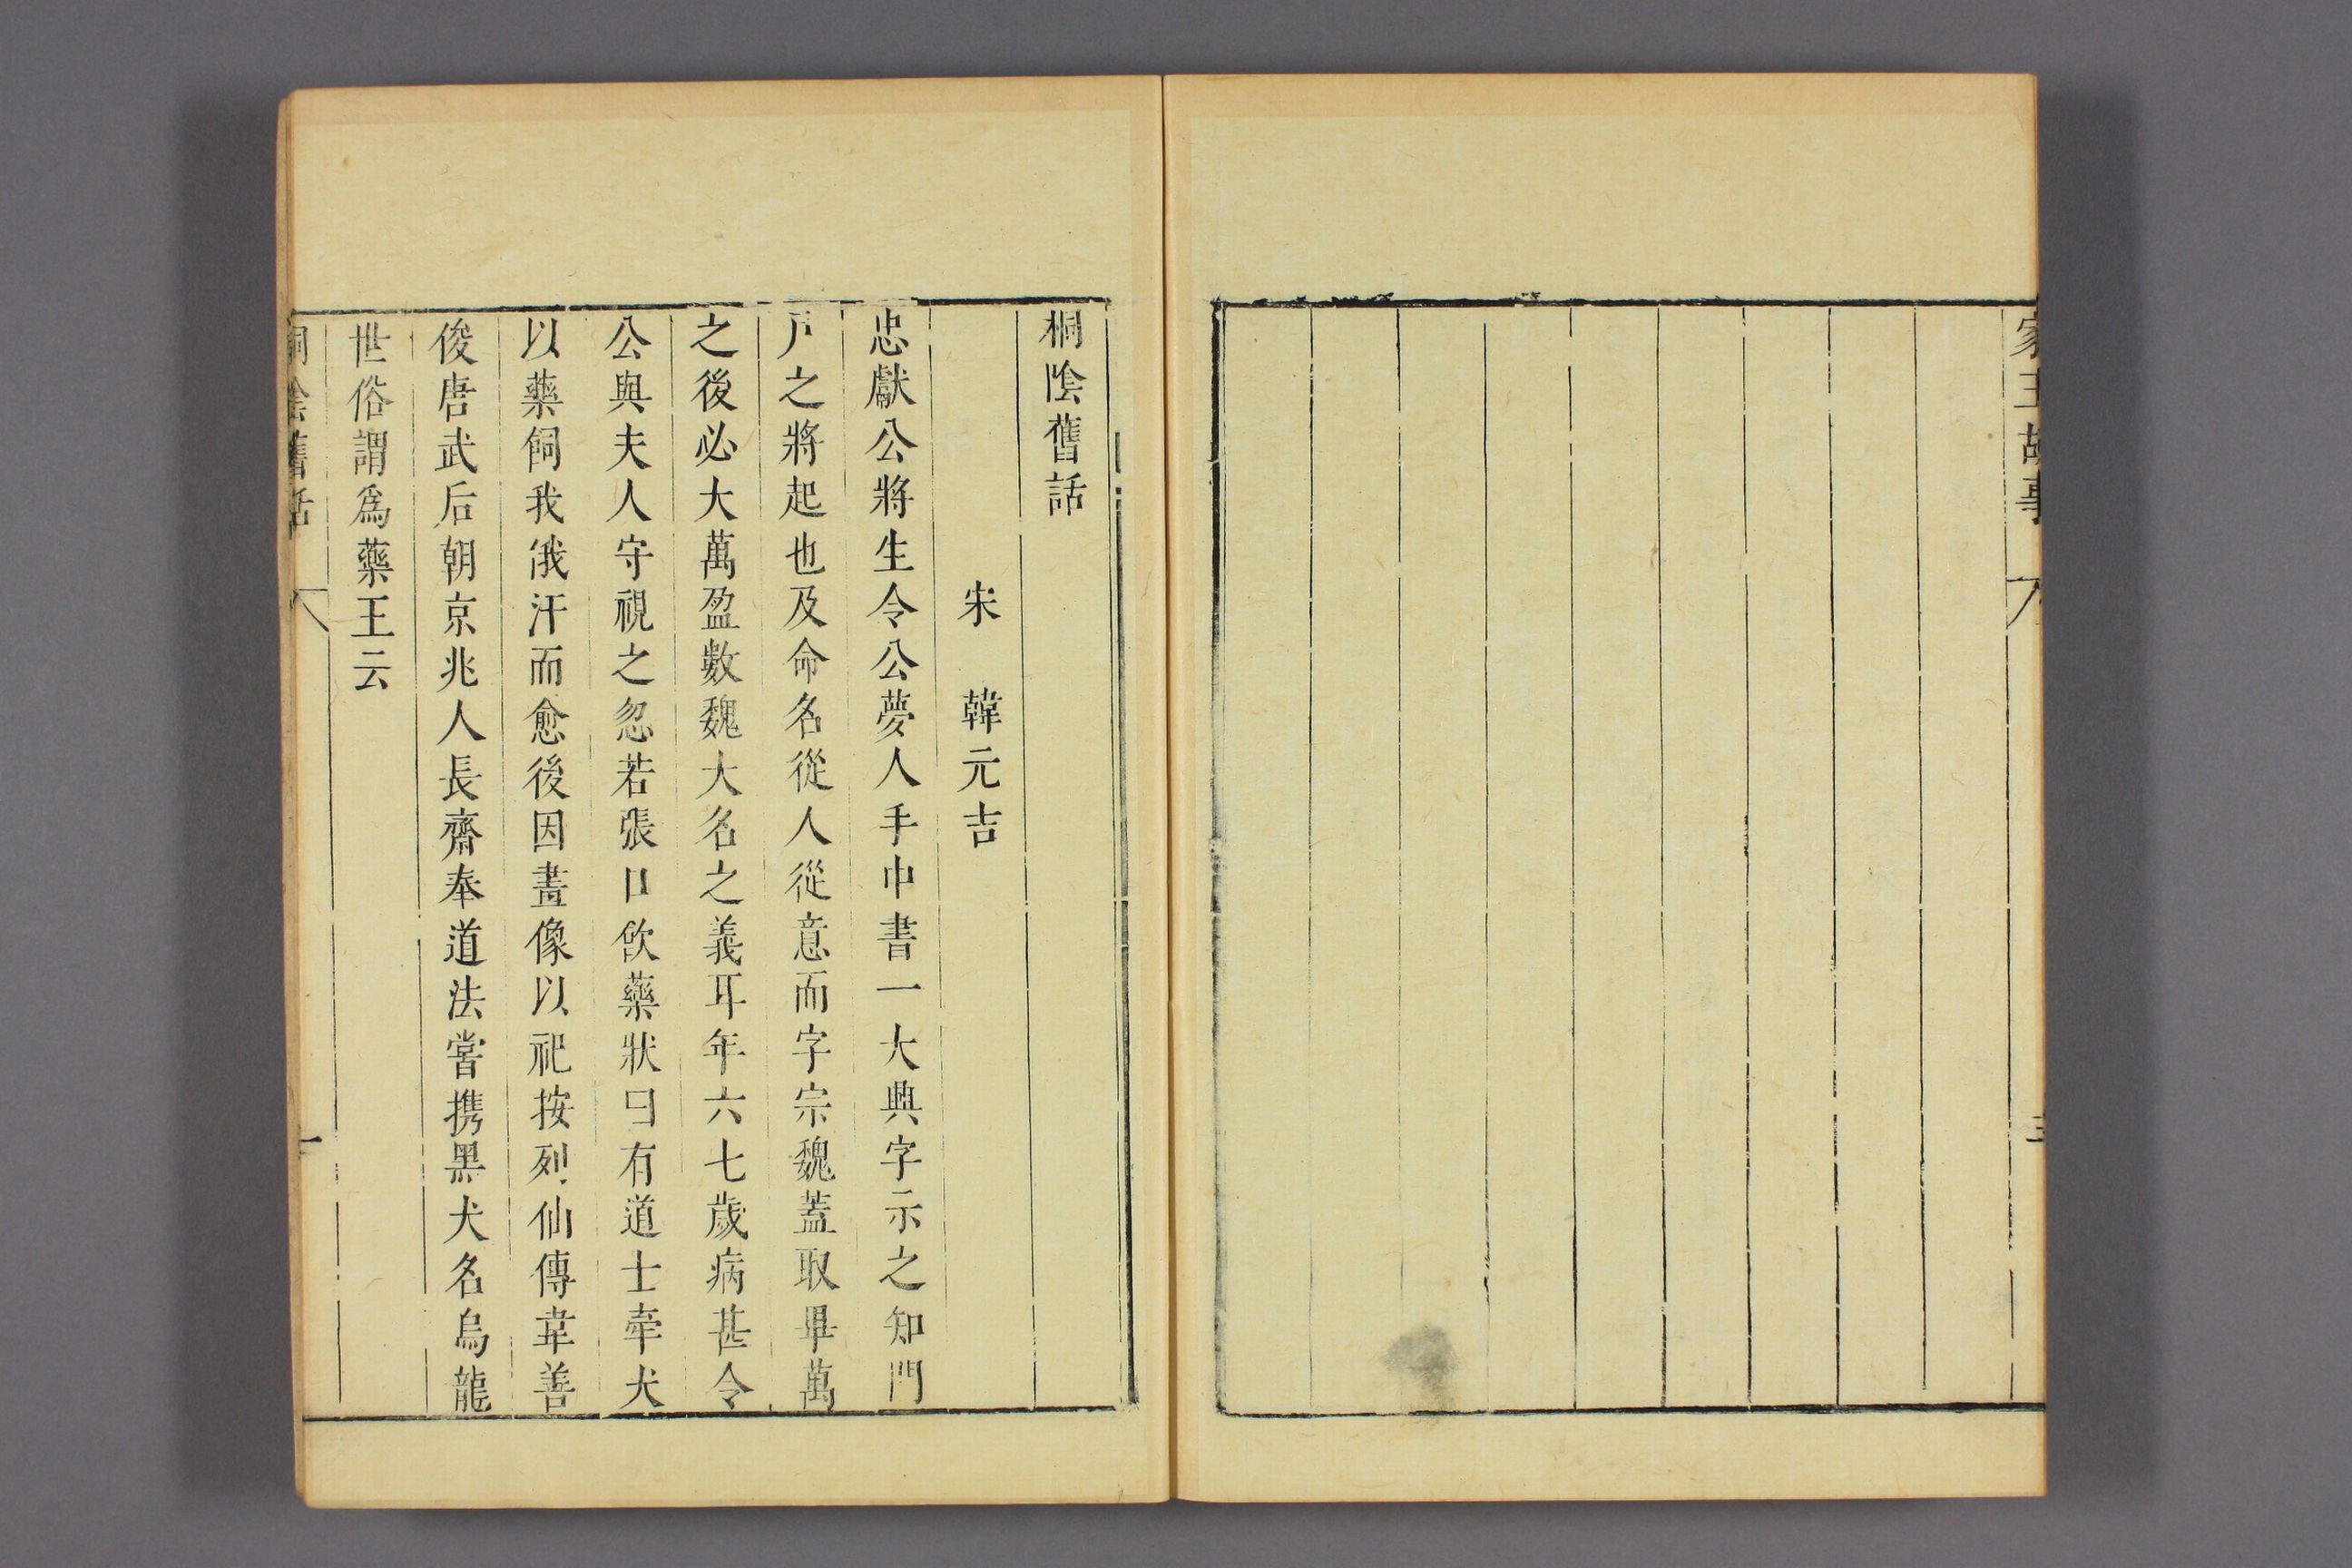 家王故事
桐陰舊話
宋　韓元吉
忠獻公將生令公夢人手中書一大興字示之知門
戸之將起也及命名從人從意而字宗魏蓋取畢萬
之後必大萬盈數魏大名之義耳年六七歲病甚令
公與夫人守視之忽若張口飲藥狀曰有道士牽犬
以藥飼我俄汗而愈後因畫像以祀按列仙傳韋善
俊唐武后朝京兆人長齋奉道法嘗携黑犬名烏龍
世俗謂爲藥王云
桐陰舊話
一